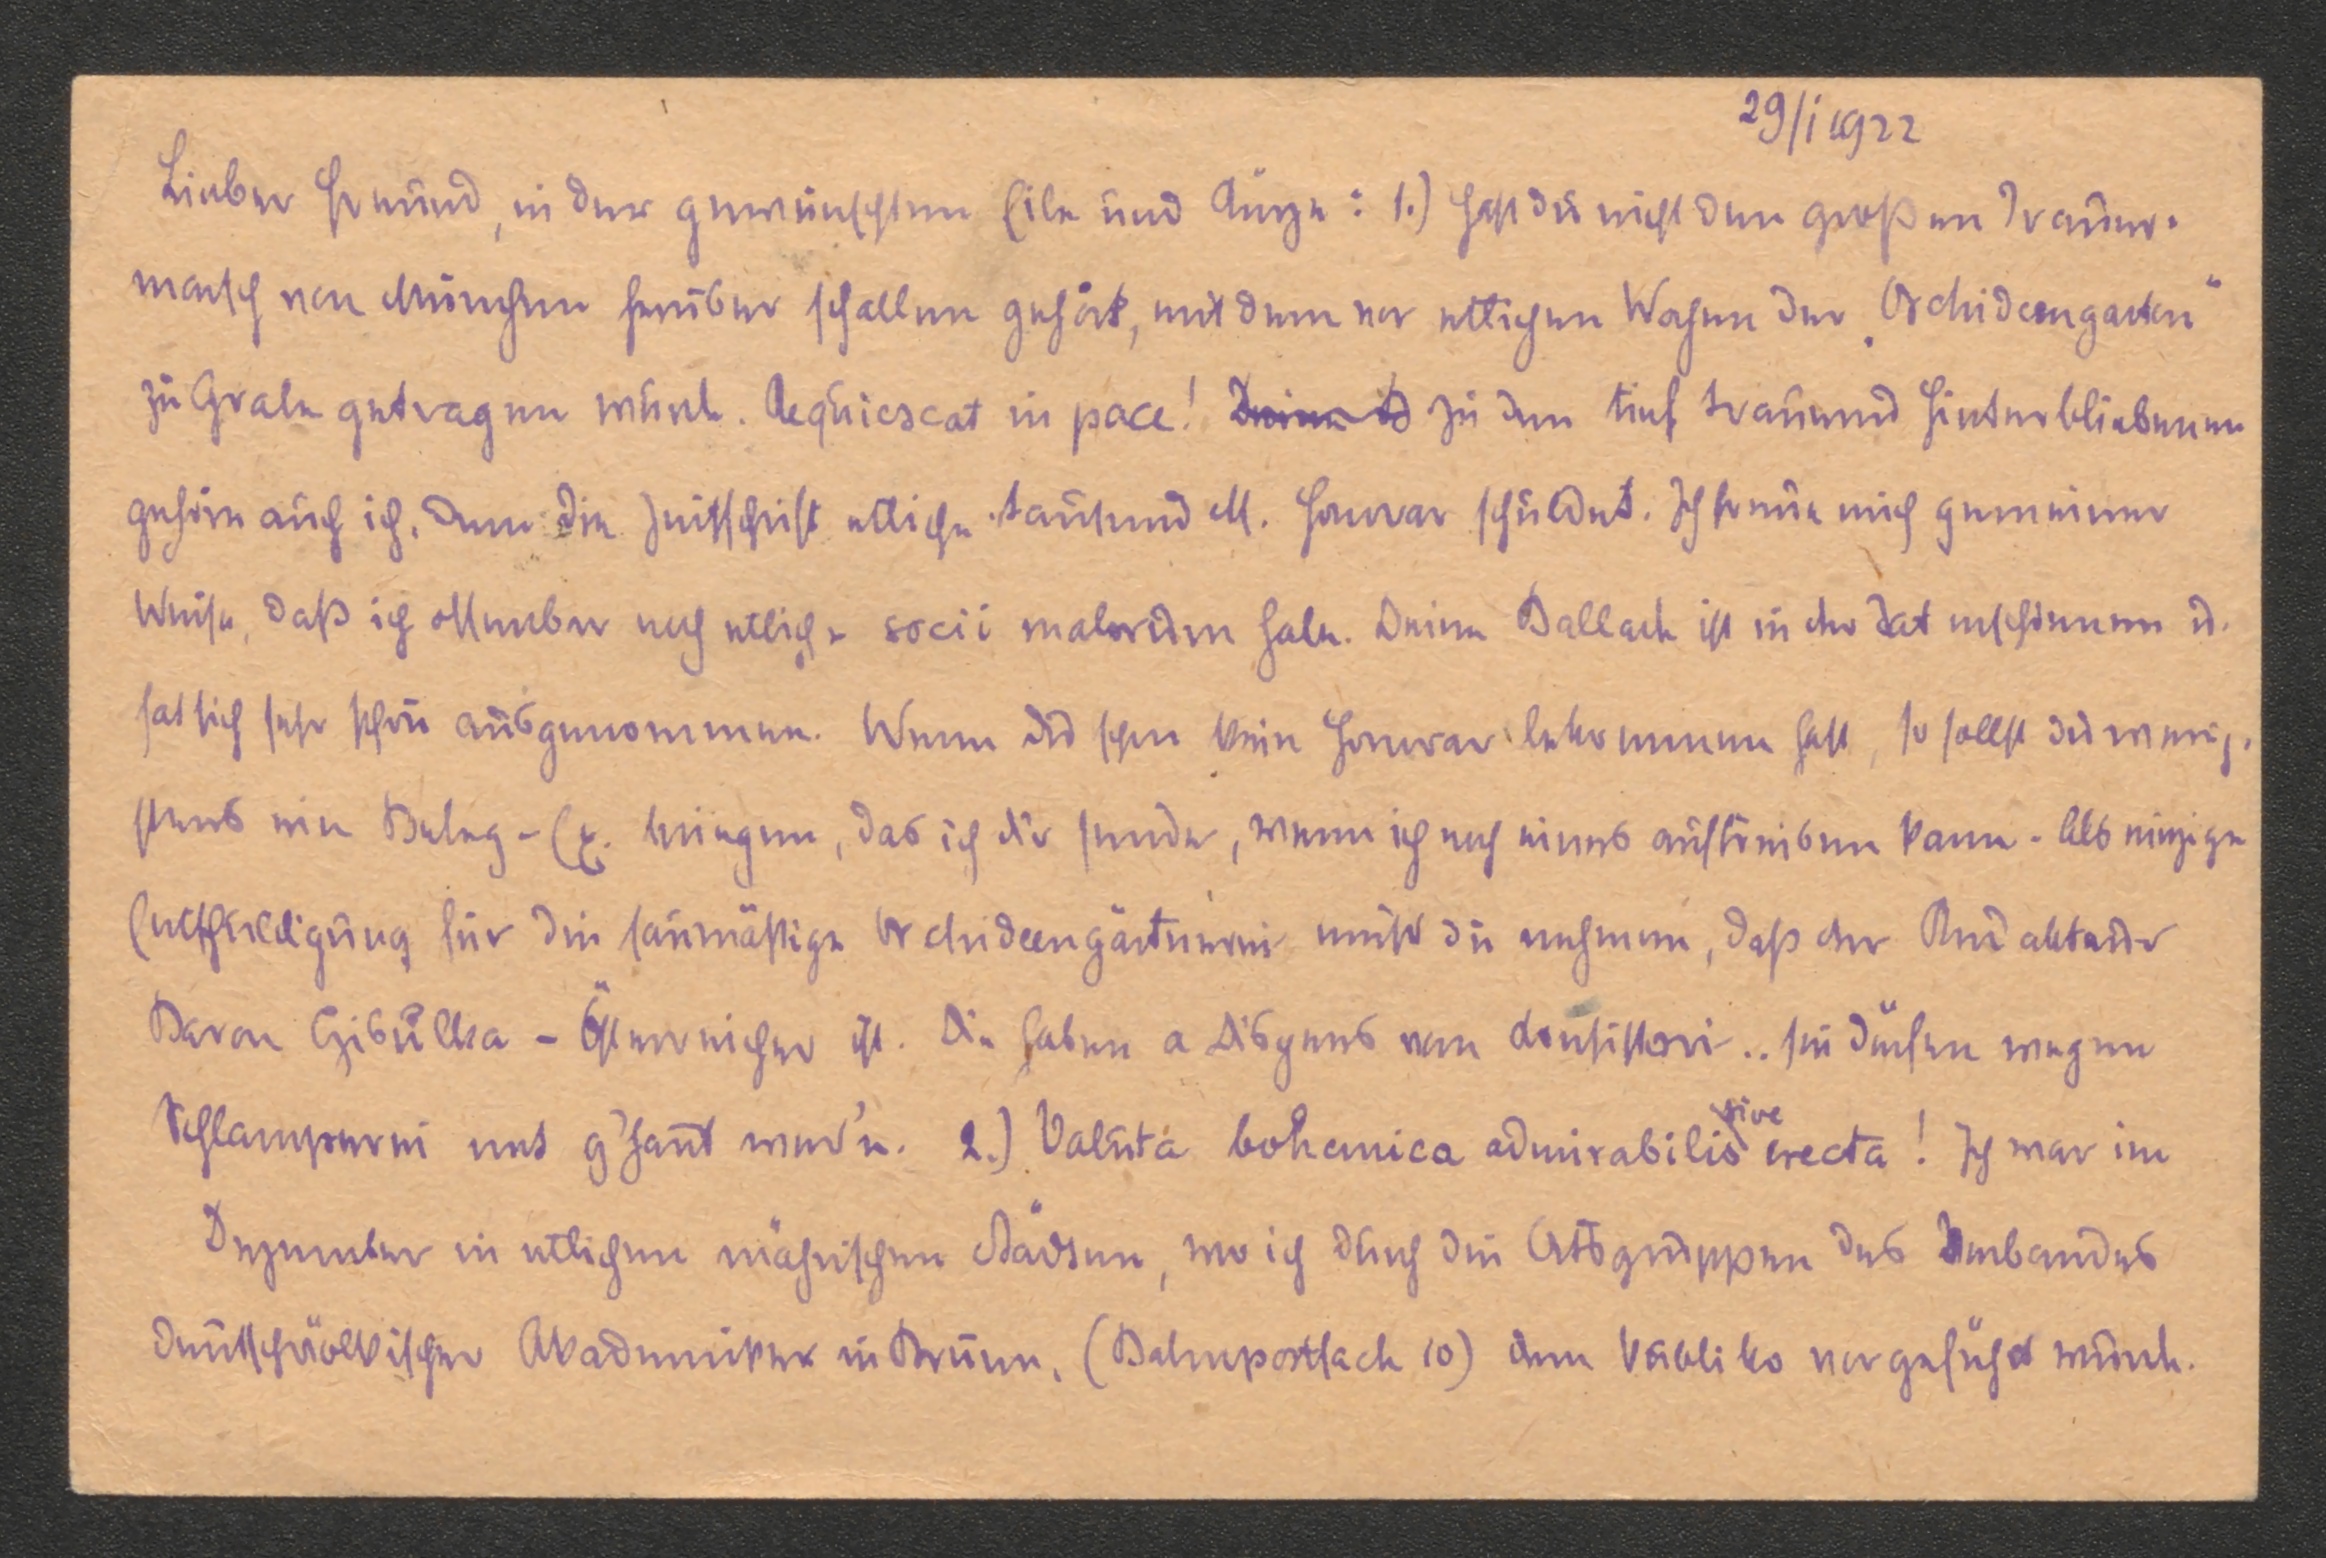 29/I 1922
Lieber Freund, in der gewünschten Eile und Kürze: 1.) Hast du nicht den großen Trauer-
marsch von München herüber schallen gehört, mit dem vor etlichen Wochen der „Orchideengarten"
zu Grabe getragen wurde. Requiescat in pace! Zu den tief trauernd Hinterbliebenen
gehöre auch ich, dem die Zeitschrift etliche tausend M. Honorar schuldet. Ich freue mich gemeiner
Weise, daß ich offenbar noch etliche socii malorum habe. Deine Ballade ist in der Tat erschienen u.
hat sich sehr schön ausgenommen. Wenn du schon kein Honorar bekommen hast, so sollst du wenig-
stens ein Beleg-Ex. kriegen, das ich dir sende, wenn ich noch eines auftreiben kann. Als einzige
Entschuldigung für die saumäßige Orchideengärtnerei mußt du nehmen, daß der Redakteur
Baron Czibulka – Österreicher ist. Die haben a Dispens vom Konsistori.. sie dürfen wegen
Schlamperei net g'haut werd'n. 2.) Valuta bohemica admirabilis sive erecta! Ich war im
Dezember in etlichen mährischen Städten, wo ich durch die Ortsgruppen des Verbandes
deutschvölkischer Akademiker in Brünn, (Bahnpostfach 10) dem Publiko vorgeführt wurde.